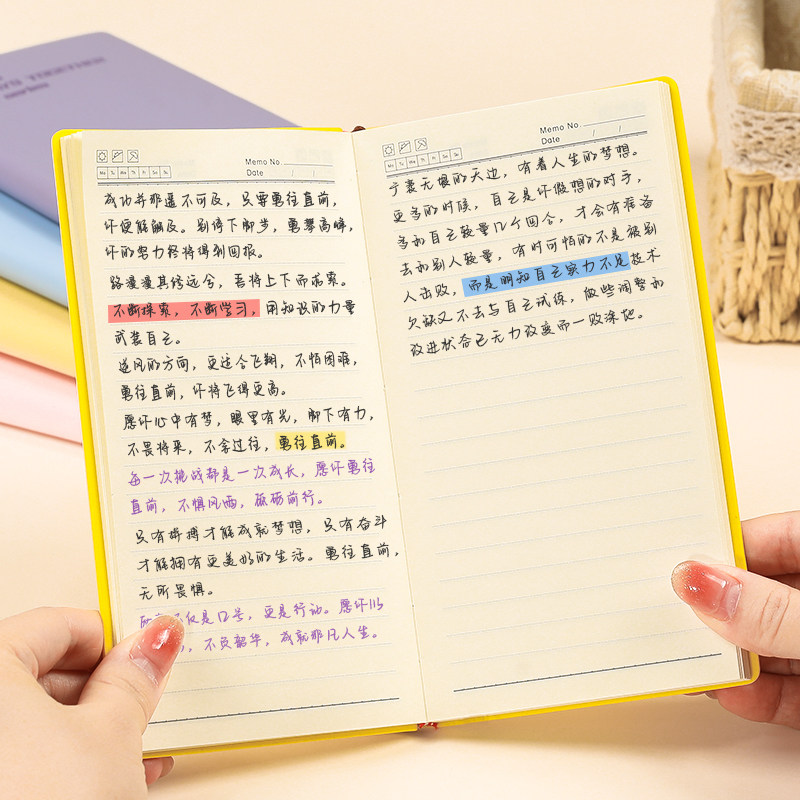 Memo No.
Date / /
Mo Tu We Th Fr Sa Su
成功并非遥不可及，只要勇往直前，
你便能触及。别停下脚步，勇攀高峰，
你的努力终将得到回报。
路漫漫其修远兮，吾将上下而求索。
不断探索，不断学习，用知识的力量
武装自己。
逆风的方向，更适合飞翔，不怕困难，
勇往直前，你将飞得更高。
愿你心中有梦，眼里有光，脚下有力，
不畏将来，不念过往，勇往直前。
每一次挑战都是一次成长，愿你勇往
直前，不惧风雨，砥砺前行。
只有拼搏才能成就梦想，只有奋斗
才能拥有更美好的生活。勇往直前，
无所畏惧。
仅是口号，更是行动。愿你以
，不负韶华，成就非凡人生。
Memo No.
Date / /
Mo Tu We Th Fr Sa Su
于囊无垠的天边，有着人生的梦想。
更多的时候，自己是你假想的对手，
多和自己较量几个回合，才会有准备
去和别人较量，有时可怕的不是被别
人击败，而是明知自己实力不足技术
欠缺又不去与自己试练，做些调整和
改进状态已无力改变而一败涂地。